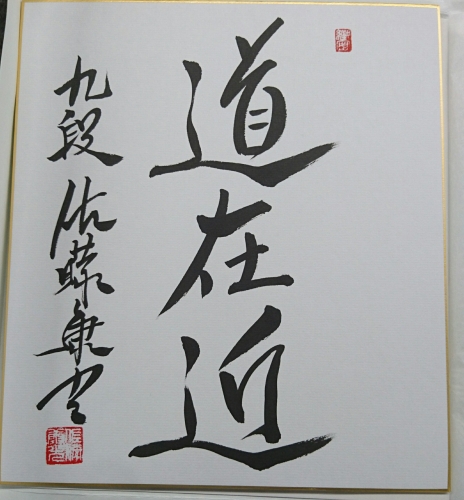 道在近
九段 佐藤康光